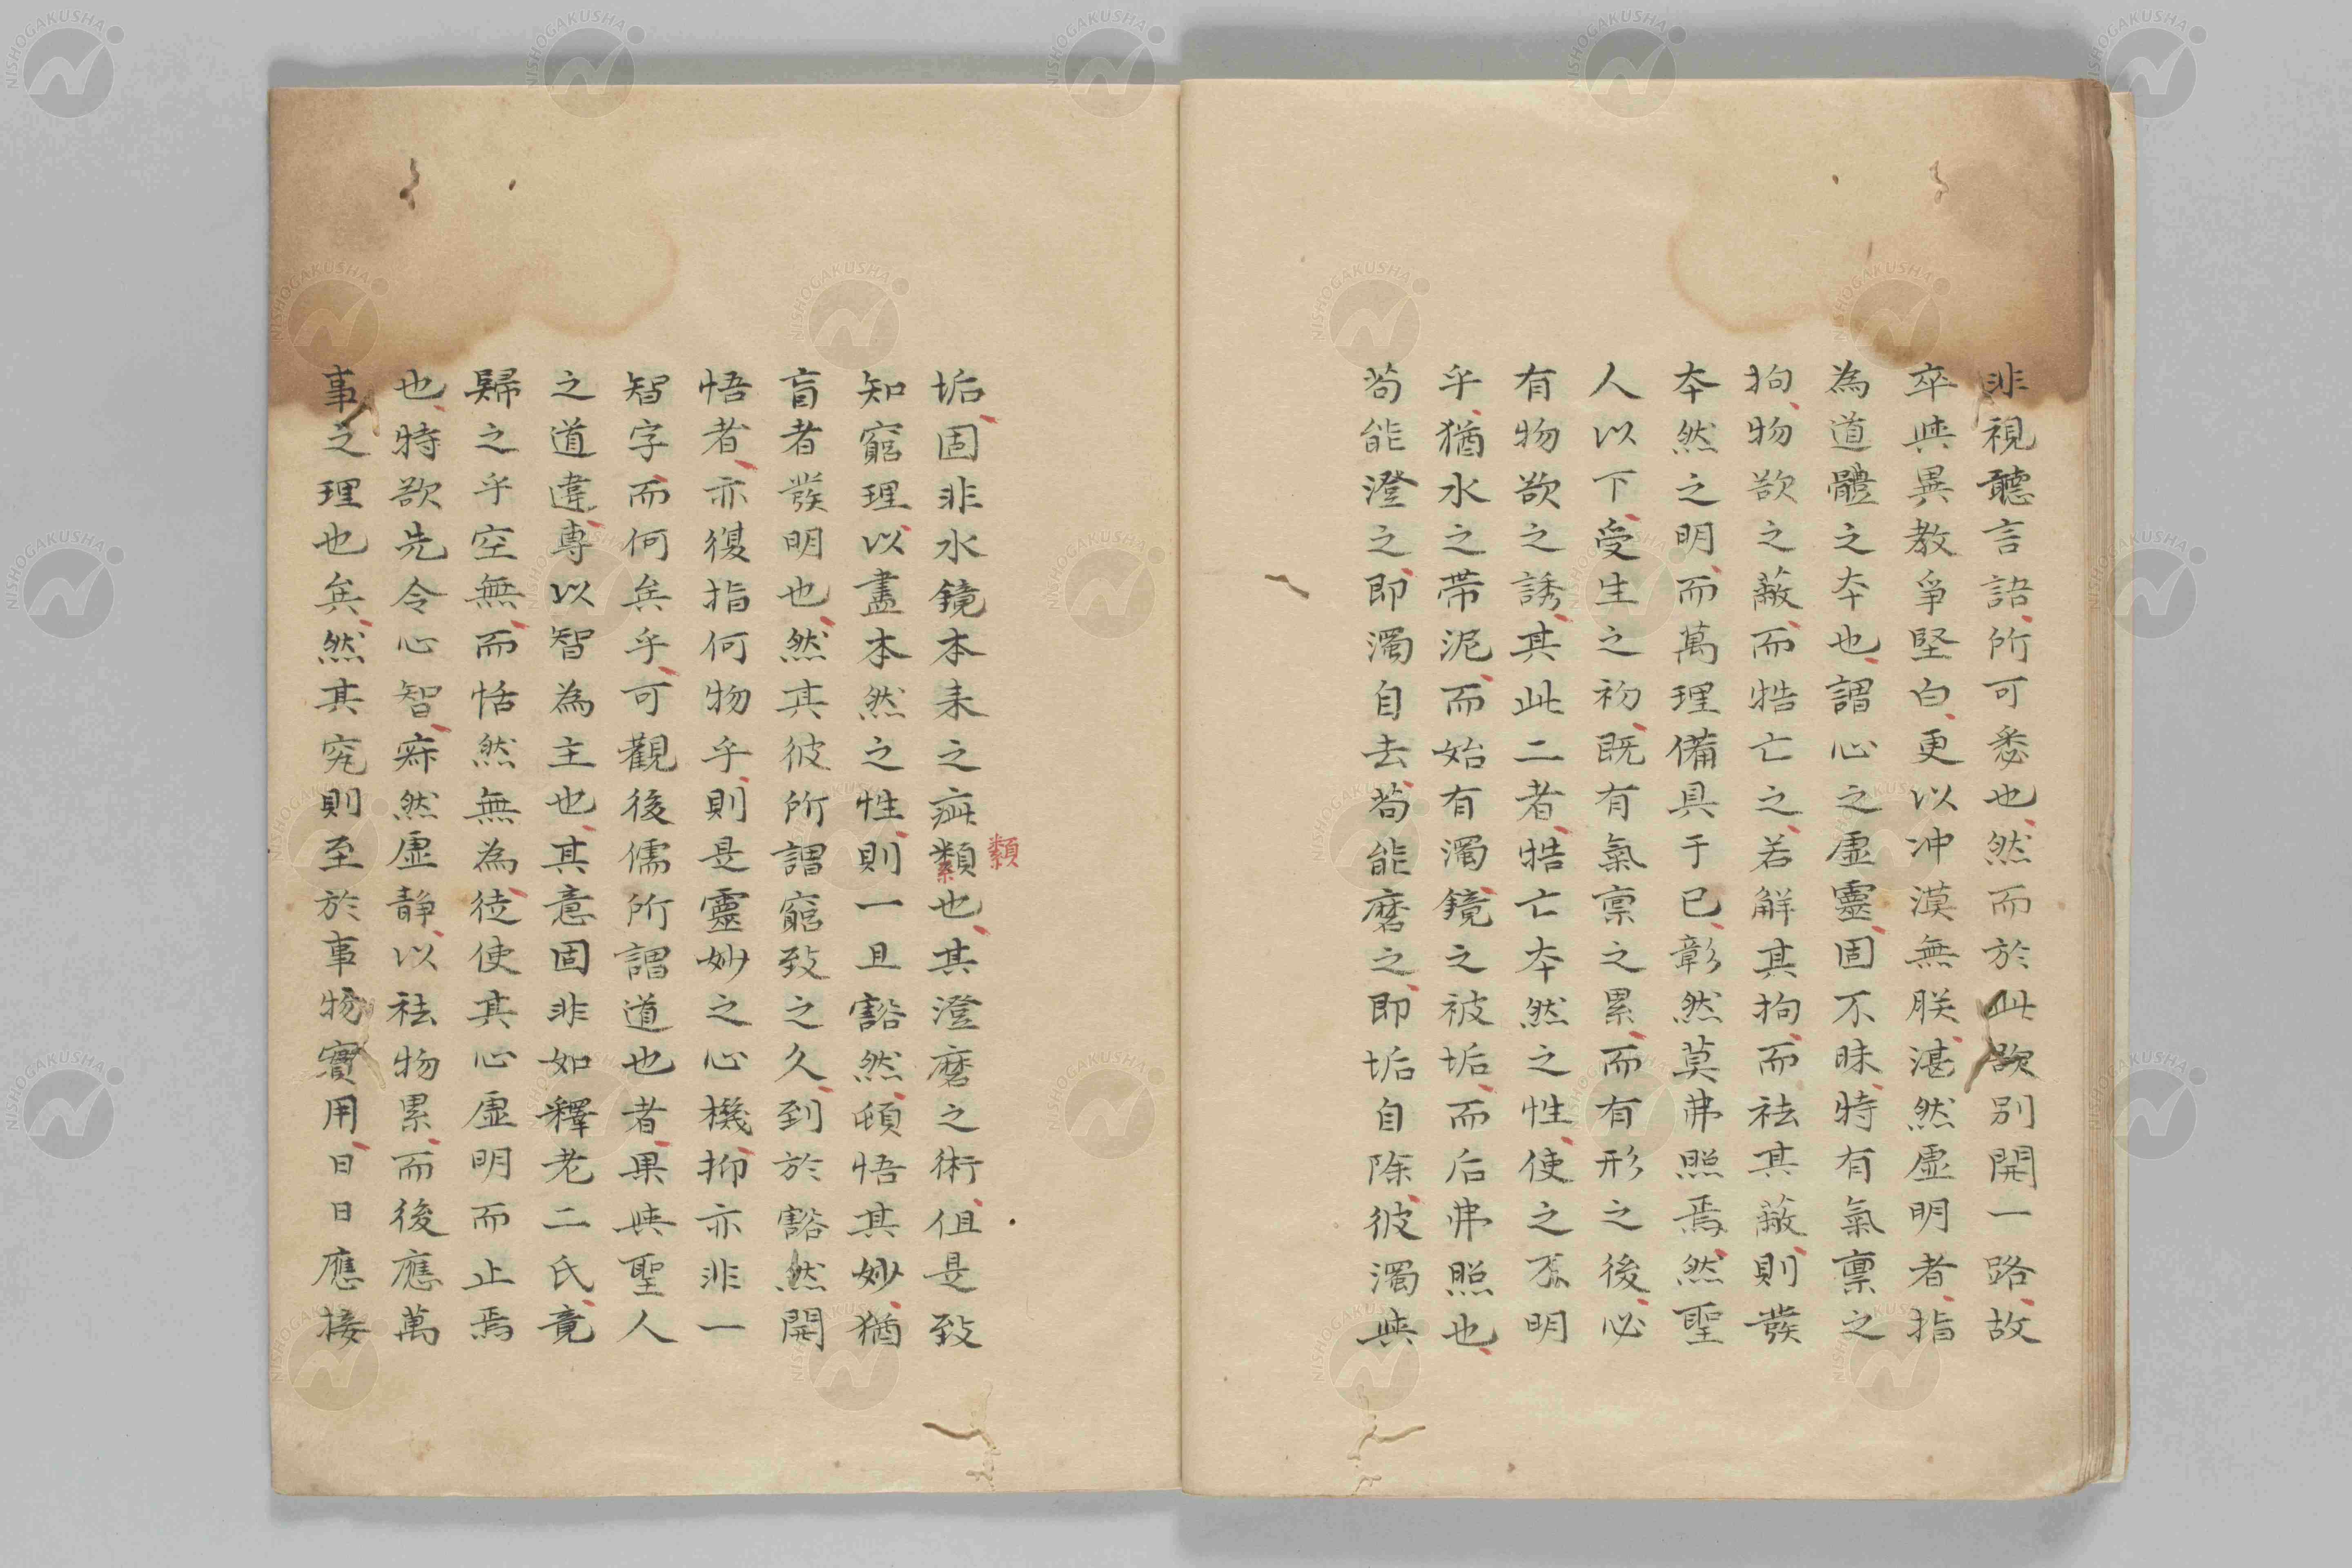 非視聽言語所可悉也然而於此欲別開一路故
卒與異教爭堅白更以冲漠無朕湛然虛明者指
為道體之本也謂心之虛靈固不昧特有氣禀之
拘物欲之蔽而牿亡之若解其拘而祛其蔽則發
本然之明而萬理備具于已彰然莫弗照焉然聖
人以下受生之初既有氣禀之累而有形之後必
有物欲之誘其此二者牿亡本然之性使之不明
乎猶水之帶泥而始有濁鏡之被垢而后弗照也
苟能澄之即濁自去苟能磨之即垢自除彼濁與
垢固非水鏡本来之疵類也其澄磨之術但是致
纇
知窮理以盡本然之性則一旦豁然頓悟其妙猶
盲者發明也然其彼所謂窮致之久到於豁然開
悟者亦復指何物乎則是靈妙之心機抑亦非一
智字而何矣乎可觀後儒所謂道也者果與聖人
之道違專以智為主也其意固非如釋老二氏竟
歸之乎空無而恬然無為徒使其心虛明而止焉
也特欲先令心智寂然虛静以祛物累而後應萬
事之理也矣然其究則至於事物實用日日應接
NISHOGAKUSHA